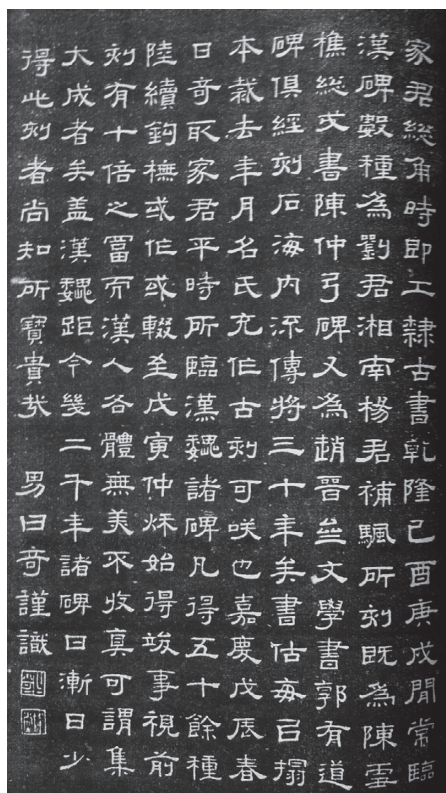 家君总角時即工隸古書乾隆己酉庚戌間常臨
漢碑數種為劉君湘南楊君補颿所刻既為陳雲
樵總戎書陳仲弓碑又為趙晉垒文學書郭有道
碑俱經刻石海内流傳將三十年矣書估每㠯搨
本裁去年月名氏充作古刻可咲也嘉慶戊辰春
日奇取家君平時所臨漢魏諸碑凡得五十餘種
陸續鉤橅或作或輟至戊寅仲秌始得竣事視前
刻有十倍之富而漢人各體無美不收真可謂集
大成者矣盖漢魏距今幾二千年諸碑日漸日少
得此刻者尚知所寶貴哉　男曰奇謹識